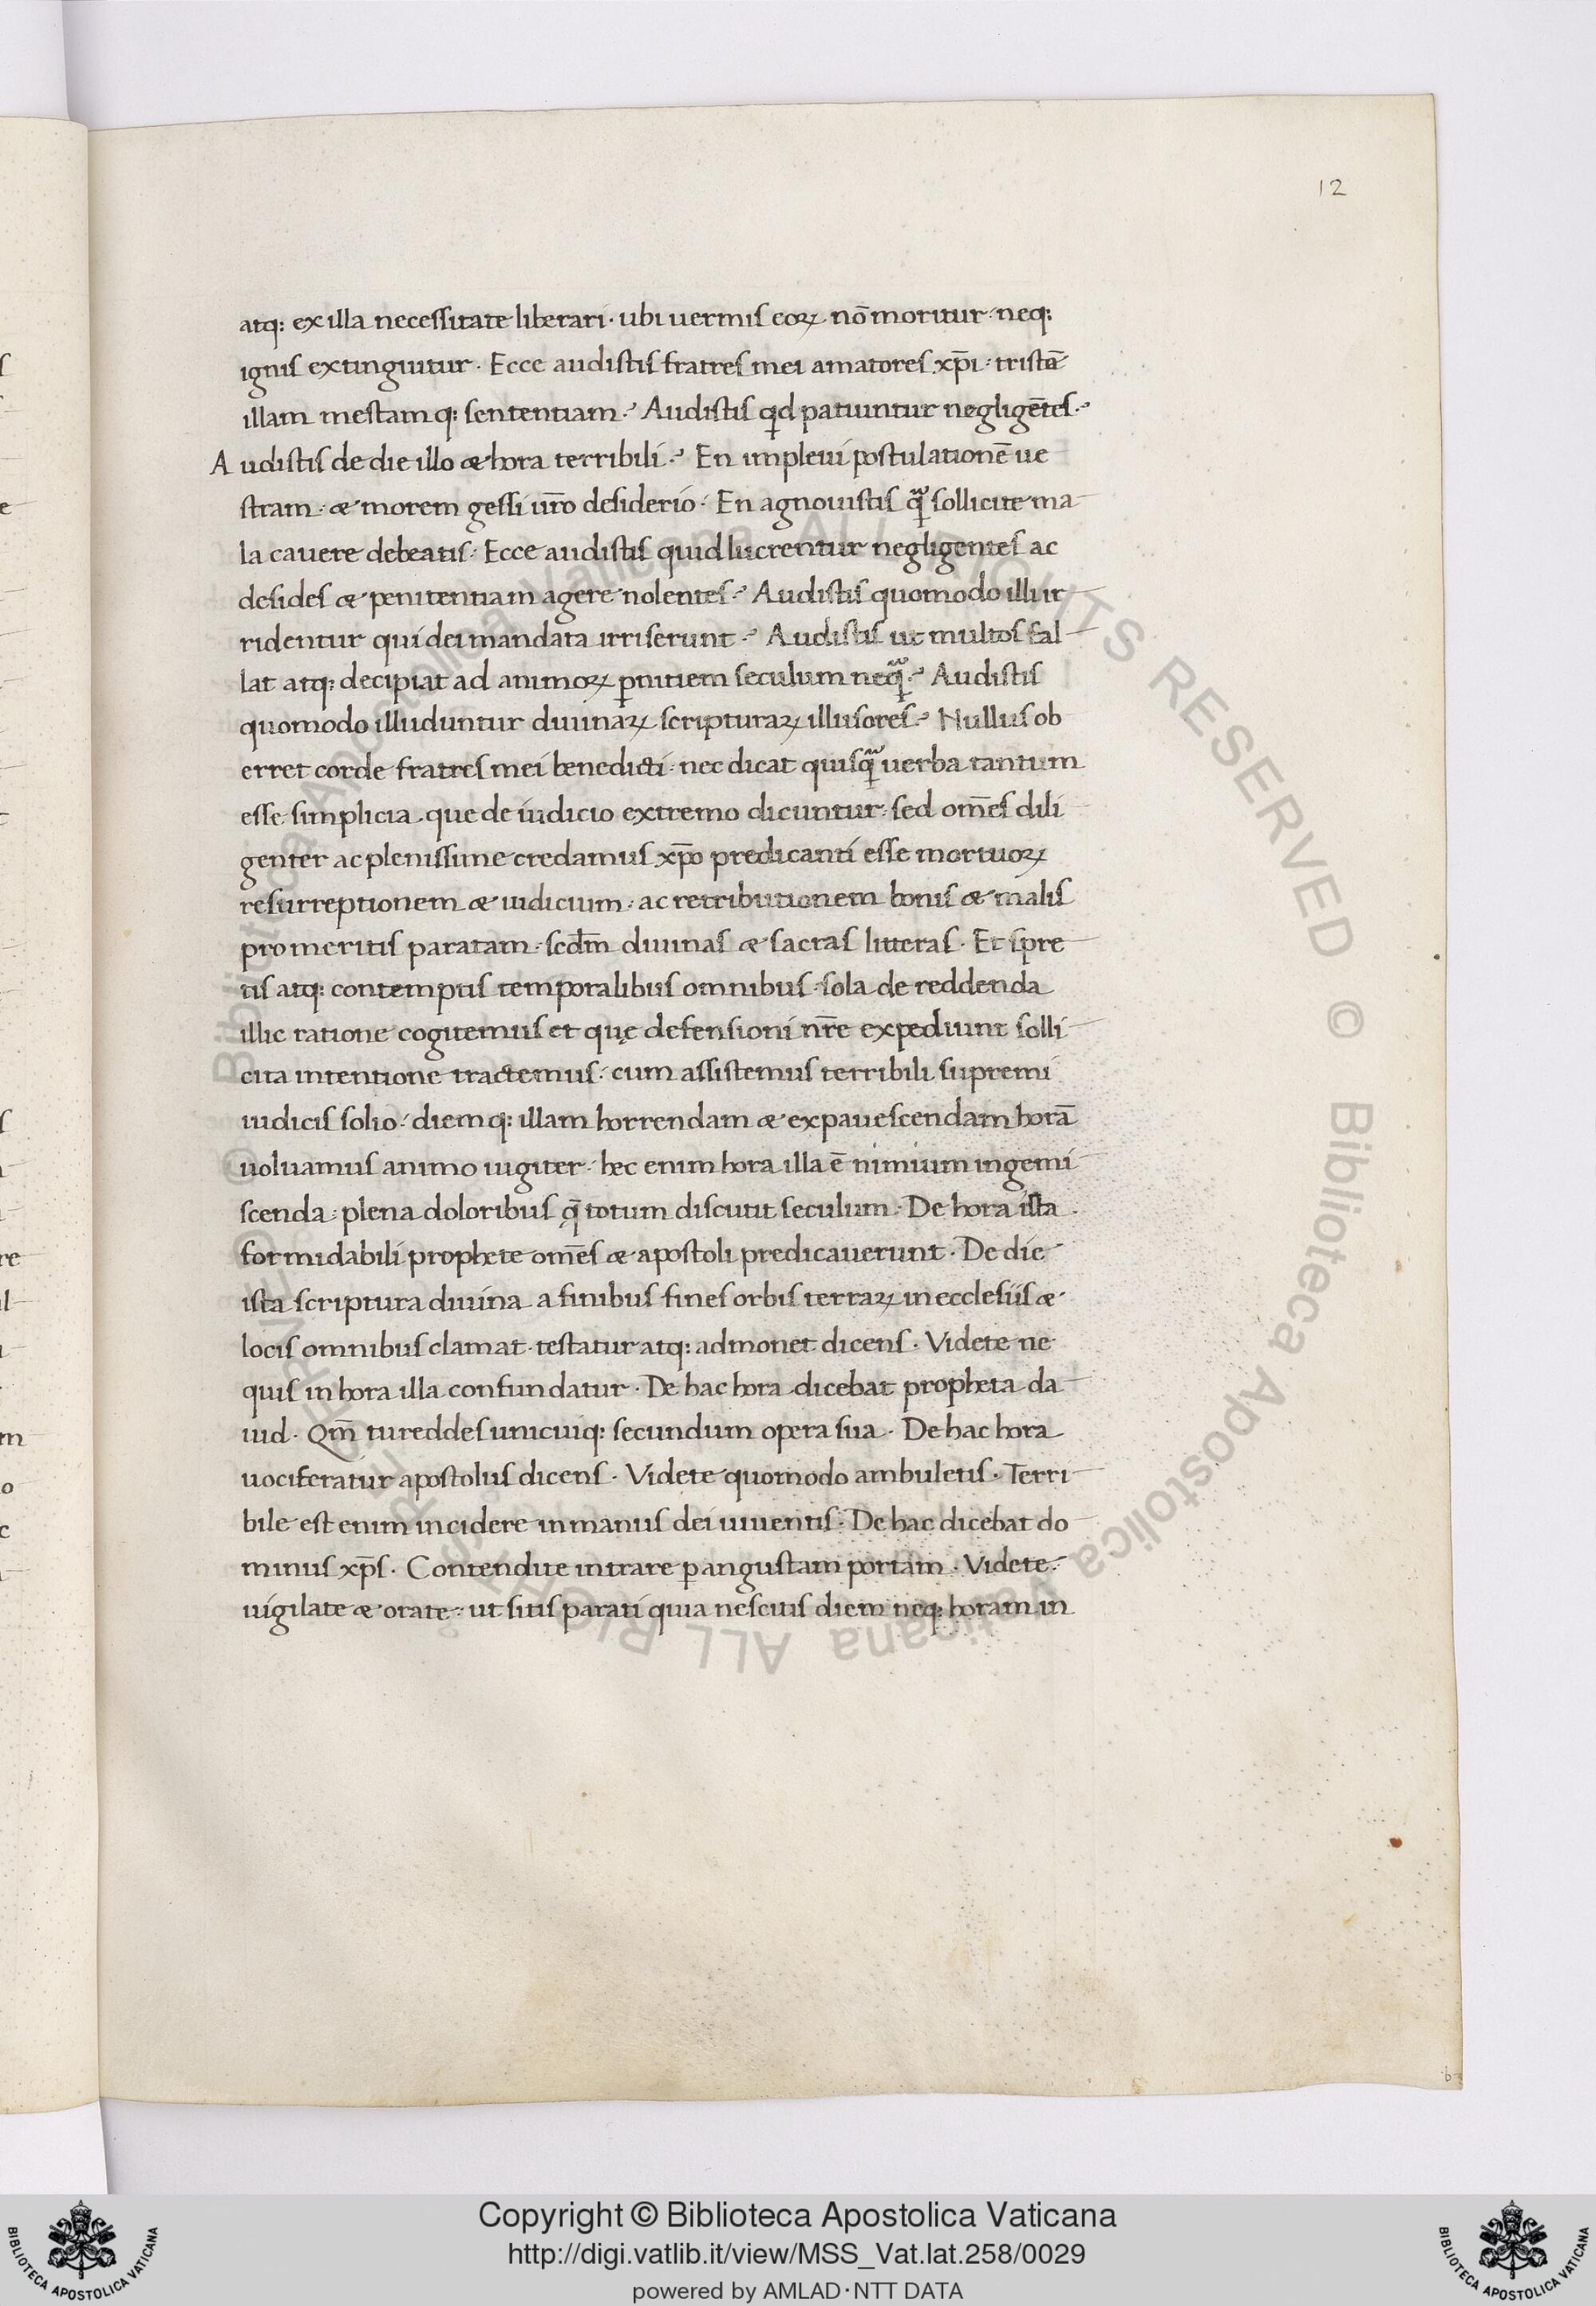 12
atq: ex illa necessitate liberari · ubi uermis eoꝝ nō moritur · neq:
ignis extinguitur · Ecce audistis fratres mei amatores xp̄i · tristē
illam mestamq: sententiam · Audistis qd patiuntur negligētes ·
Audistis de die illo & hora terribili · En impleui postulationē ue
stram · & morem gessi ur̄o desiderio · En agnouistis qᷓ sollicite ma
la cauere debeatis · Ecce audistis quid lucrentur negligentes ac
desides & penitentiam agere nolentes · Audistis quomodo illi ir
ridentur qui dei mandata irriserunt · Audistis ut multos fal
lat atq: decipiat ad animoꝝ ꝑnitiem seculum neqᷓ · Audistis
quomodo illuduntur diuinaꝝ scripturaꝝ illusores · Nullus ob
erret corde fratres mei benedicti · nec dicat quisqᷓ uerba tantum
esse simplicia que de iudicio extremo dicuntur · sed om̄es dili
genter ac plenissime credamus xp̄o predicanti esse mortuoꝝ
resurreptionem & iudicium · ac retributionem bonis & malis
pro meritis paratam · scd̄m diuinas & sacras litteras · Et spre
tis atq: contemptis temporalibus omnibus · sola de reddenda
illic ratione cogitemus et quę defensioni nr̄e expediunt solli
cita intentione tractemus · cum assistemus terribili supremi
iudicis solio · diemq: illam horrendam & expauescendam horā
uoluamus animo iugiter · hec enim hora illa ē nimium ingemi
scenda · plena doloribus q̄ totum discutit seculum · De hora ista
formidabili prophete om̄es & apostoli predicauerunt · De die
ista scriptura diuina a finibus fines orbis terraꝝ in ecclesiis &
locis omnibus clamat · testatur atq: admonet dicens · Videte ne
quis in hora illa confundatur · De hac hora dicebat propheta da
uid · Qm̄ tu reddes unicuiq: secundum opera sua · De hac hora
uociferatur apostolus dicens · Videte quomodo ambuletis · Terri
bile est enim incidere in manus dei uiuentis · De hac dicebat do
minus xp̄s · Contendite intrare ꝑ angustam portam · Videte
uigilate & orate · ut sitis parati quia nescitis diem neq: horam in
Copyright © Biblioteca Apostolica Vaticana
http://digi.vatlib.it/view/MSS_Vat.lat.258/0029
powered by AMLAD·NTT DATA